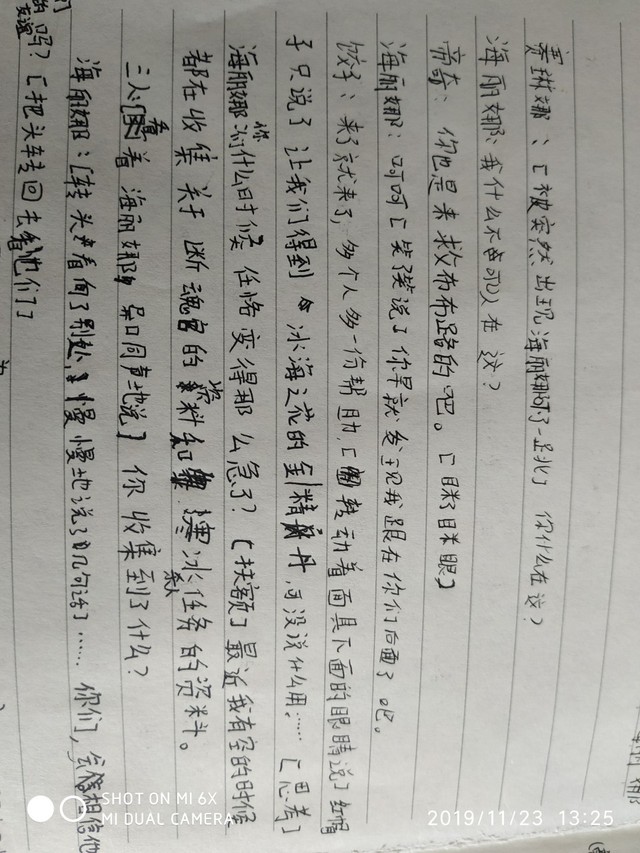 贾琳娜：[被突然出现海丽娜吓了一跳] 你什么在这？
海丽娜：我什么不可以在这？
帝奇：你也是来救布布路的吧。[眯了眯眼]
海丽娜：呵呵[笑了笑说了你早就发现我跟在你们后面了吧。
饺子：来了就来了，多个人多一份帮助，[转动着面具下面的眼睛说]红帽
子只说了让我们得到冰海之花的剑精丹，可没说什么用……[思考]
海丽娜：你们什么时候任性变得那么急了？[扶额]最近我有空的时候
都在收集关于断魂宫的资料和寒冰任务的资料。
三人：[看着海丽娜异口同声地说]你收集到了什么？
海丽娜：[转头看向了别处，慢慢地说了几句话]……你们，会相信他
的吗？[把头转回去看他们]
SHOT ON MI 6X
MI DUAL CAMERA
2019/11/23 13:25